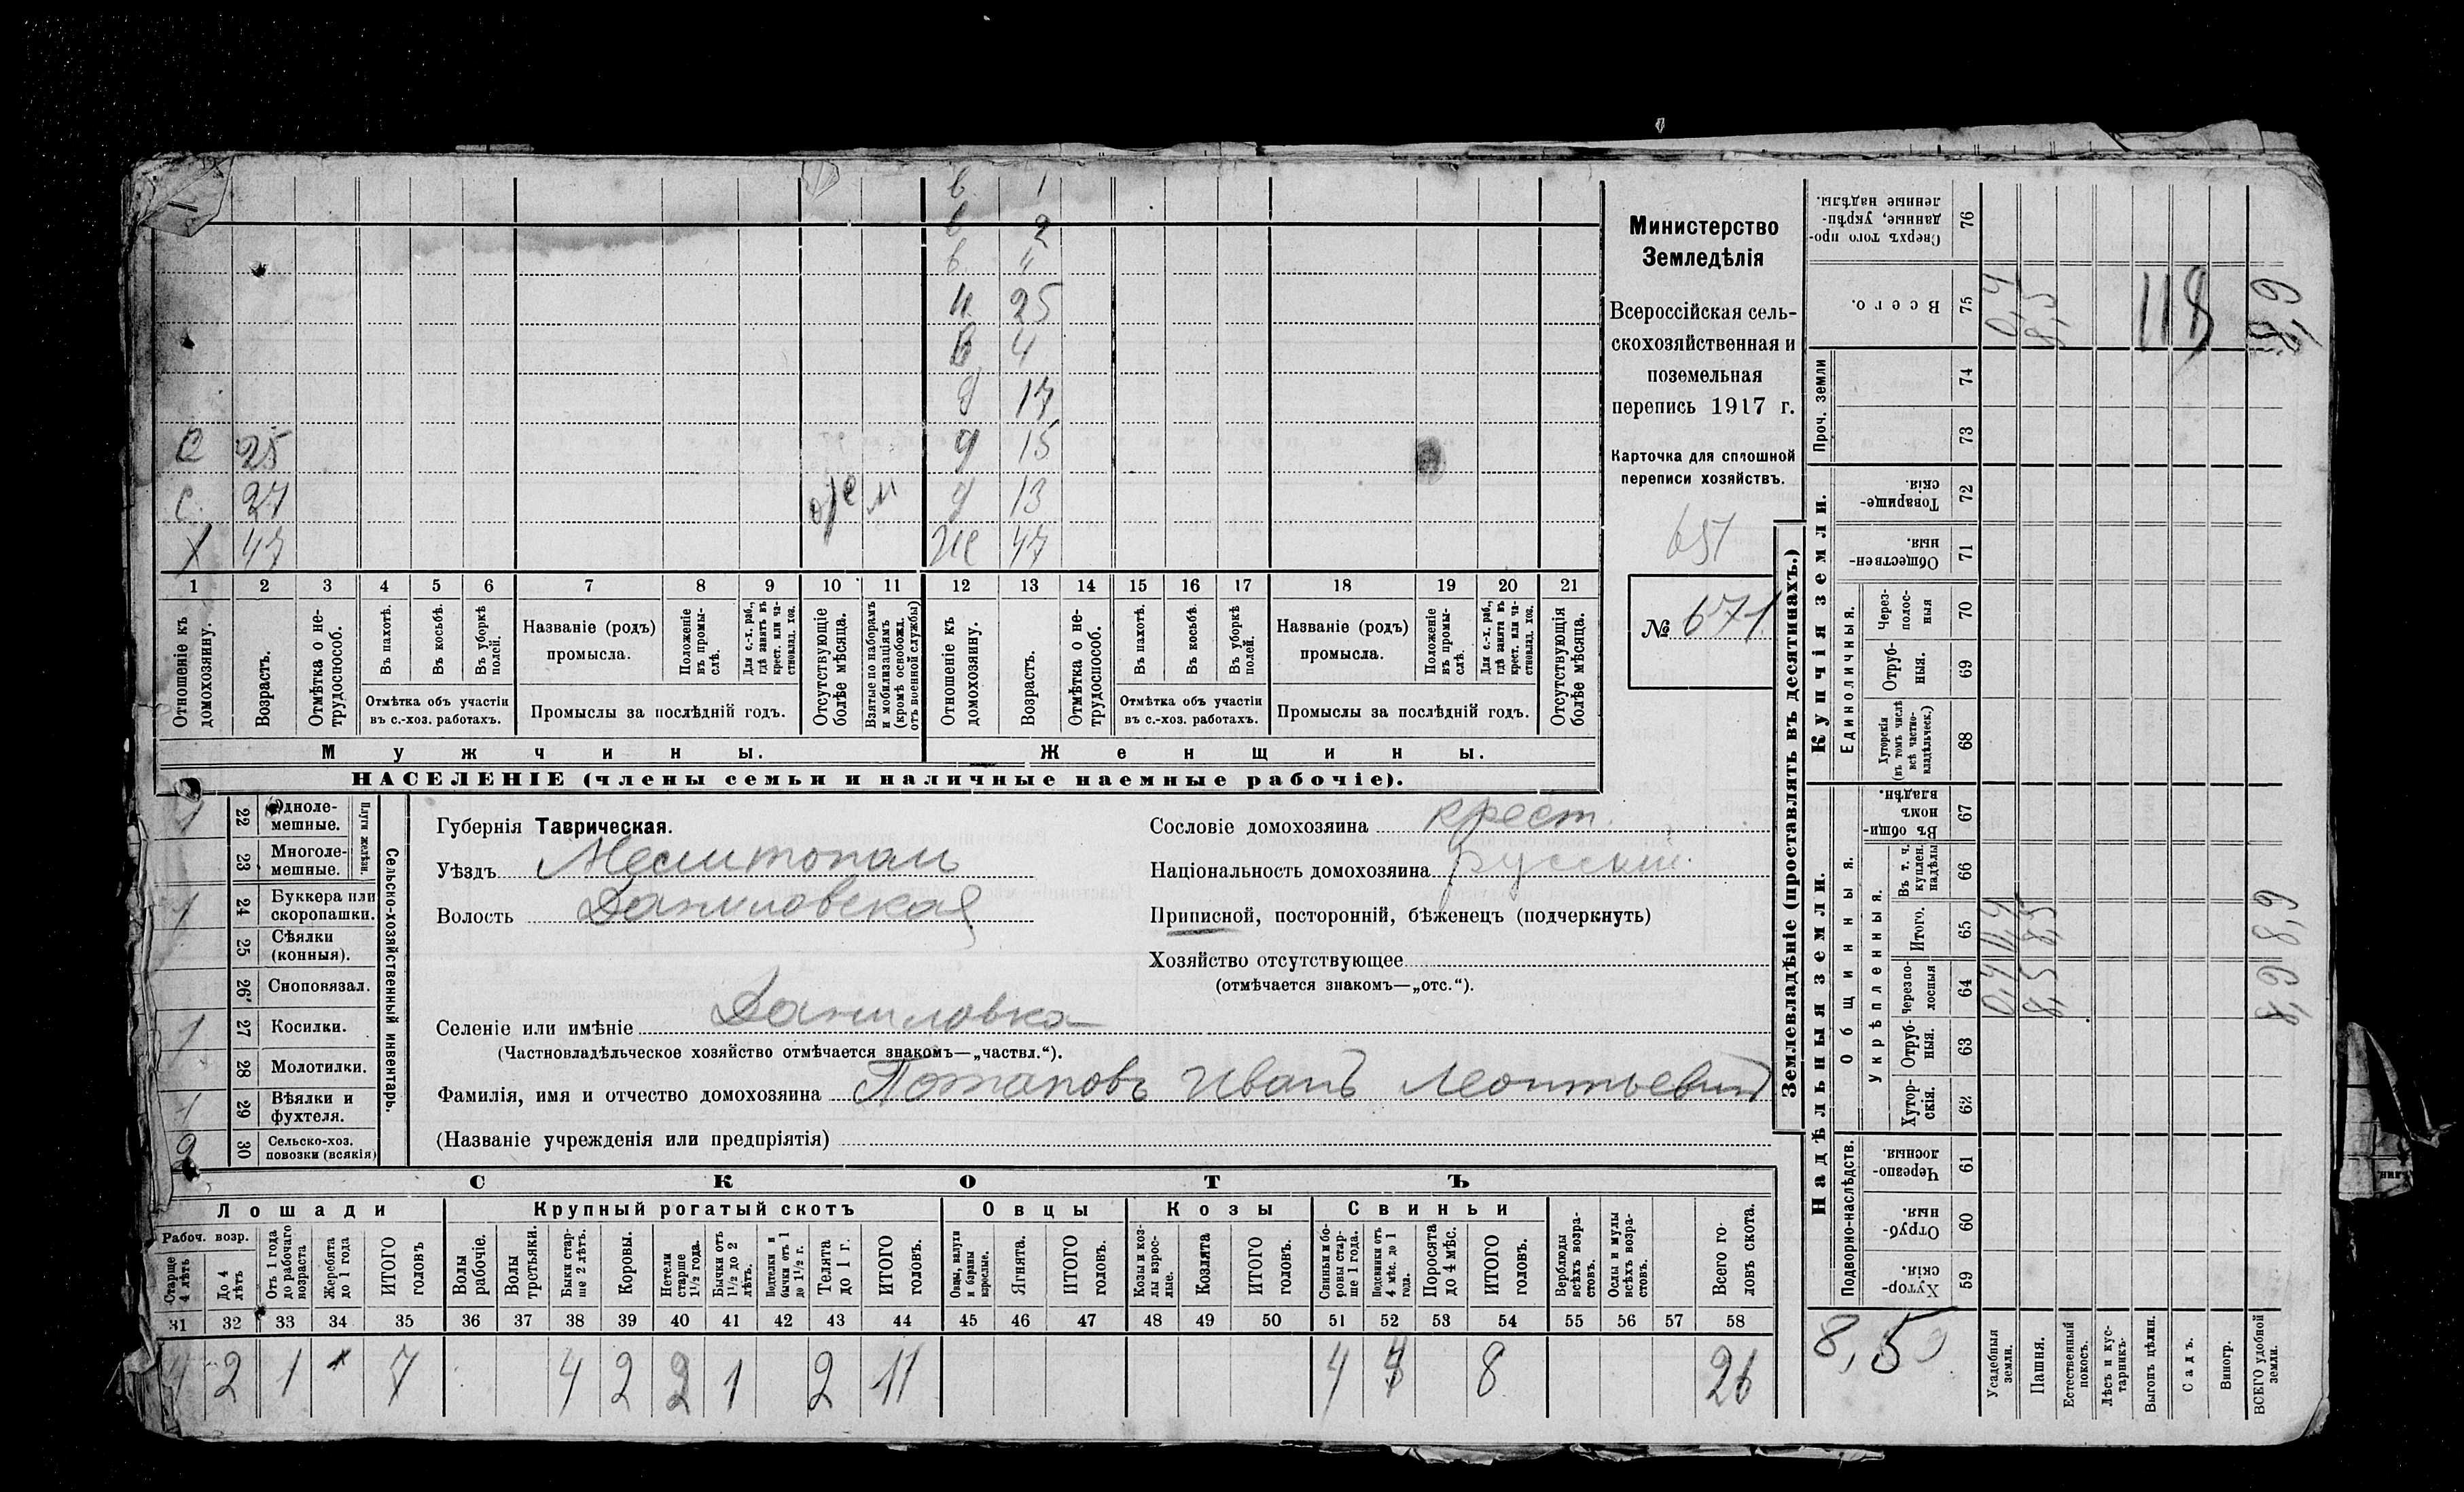 в 1
в 2
в 4
н 25
в 4
д 17
С 25 д 15
С. 27 м д 13
Х 47 же 47
1 2 3 4 5 6 7 8 9 10 11 12 13 14 15 16 17 18 19 20 21
Отношеніе къ домохозяину.
Возрастъ.
Отмѣтка о не-трудоспособ.
Въ пахотѣ.
Въ косьбѣ.
Въ уборкѣ полей.
Отмѣтка объ участіи
въ с.-хоз. работахъ.
Названіе (родъ)
промысла.
Положеніе въ промы-слѣ.
Для с.-х. раб., гдѣ занятъ въ крест. или ча-стновлад. хоз.
Промыслы за послѣдній годъ.
Отсутствующіе болѣе мѣсяца.
Взятые по наборамъ и мобилизаціямъ (кромѣ освобожд. отъ военной службы)
Отношеніе къ домохозяину.
Возрастъ.
Отмѣтка о не-трудоспособ.
Въ пахотѣ.
Въ косьбѣ.
Въ уборкѣ полей.
Отмѣтка объ участіи
въ с.-хоз. работахъ.
Названіе (родъ)
промысла.
Положеніе въ промы-слѣ.
Для с.-х. раб., гдѣ занята въ крест. или ча-стновлад. хоз.
Промыслы за послѣдній годъ.
Отсутствующія болѣе мѣсяца.
Мужчины.
Женщины.
НАСЕЛЕНІЕ (члены семьи и наличные наемные рабочіе).
Министерство
Земледѣлія
Всероссійская сель-
скохозяйственная и
поземельная
перепись 1917 г.
Карточка для сплошной
переписи хозяйствъ.
651
№ 671
1 22 Одноле-мешные.
23 Многоле-мешные.
Плуги желѣзн.
1 24 Буккера или скоропашки.
25 Сѣялки (конныя).
26 Сноповязал.
1 27 Косилки.
28 Молотилки.
1 29 Вѣялки и фухтеля.
2 30 Сельско-хоз. повозки (всякія)
Сельско-хозяйственный инвентарь.
Губернія Таврическая.
Уѣздъ Мелитопол
Волость Даниловская
Селеніе или имѣніе Даниловка
(Частновладѣльческое хозяйство отмѣчается знакомъ—„частвл.“).
Фамилія, имя и отчество домохозяина Потаповъ Иванъ Леонтьевич
(Названіе учрежденія или предпріятія)
Сословіе домохозяина крест.
Національность домохозяина русскій
Приписной, посторонній, бѣженецъ (подчеркнуть)
Хозяйство отсутствующее
(отмѣчается знакомъ—„отс.“).
СКОТЪ
Лошади
Крупный рогатый скотъ
Овцы
Козы
Свиньи
Рабоч. возр.
Старше 4 лѣтъ
До 4 лѣтъ
Отъ 1 года до рабочаго возраста
Жеребята до 1 года
ИТОГО головъ
Волы рабочіе.
Волы третьяки.
Быки стар-ше 2 лѣтъ.
Коровы.
Нетели старше 1½ года.
Бычки отъ 1½ до 2 лѣтъ.
Подтелки и бычки отъ 1 до 1½ г.
Телята до 1 г.
ИТОГО головъ.
Овцы, валухи и бараны взрослые.
Ягнята.
ИТОГО головъ.
Козы и коз-лы взрос-лые.
Козлята
ИТОГО головъ.
Свиньи и бо-ровы стар-ше 1 года.
Подсвинки отъ 4 мѣс. до 1 года.
Поросята до 4 мѣс.
ИТОГО головъ.
Верблюды всѣхъ возра-стовъ.
Ослы и мулы всѣхъ возра-стовъ.
Всего го-ловъ скота.
31 32 33 34 35 36 37 38 39 40 41 42 43 44 45 46 47 48 49 50 51 52 53 54 55 56 57 58
4 2 1 7 4 2 2 1 2 11 4 4 8 26
Землевладѣніе (проставлять въ десятинахъ.)
Надѣльныя земли.
Купчія земли.
Проч. земли
Подворно-наслѣдств.
Общинныя.
Укрѣпленныя.
Единоличныя.
Сверхъ того про-данные, укрѣп-ленные надѣлы. 76
Всего. 75 0,4 8,5 118 8,9
74
73
Товарище-скія. 72
Обществен-ныя. 71
Через-полос-ныя 70
Отруб-ныя. 69
Хуторскія (въ томъ числѣ всѣ частно-владѣльческ.) 68
Въ общин-номъ владѣн. 67
Въ т. ч. куплен. надѣлы 66
Итого. 65 0,4 8,5 8,9
Черезпо-лосныя 64 0,4 8,5 8,9
Отруб-ныя. 63
Хутор-скія. 62
Черезпо-лосныя. 61
Отруб-ныя. 60
Хутор-скія. 59
8,5
Усадебныя земли.
Пашня.
Естественный покосъ.
Лѣсъ и кус-тарникъ.
Выгонъ цѣлин.
Садъ.
Виногр.
ВСЕГО удобной земли.